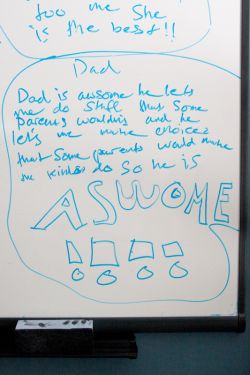 too me She
is the best!!
Dad
Dad is awsome he lets
me do stuff that some
parents wouldnt and he
let's me make choices
that some parents would make
me kinda do so he is
ASWOME